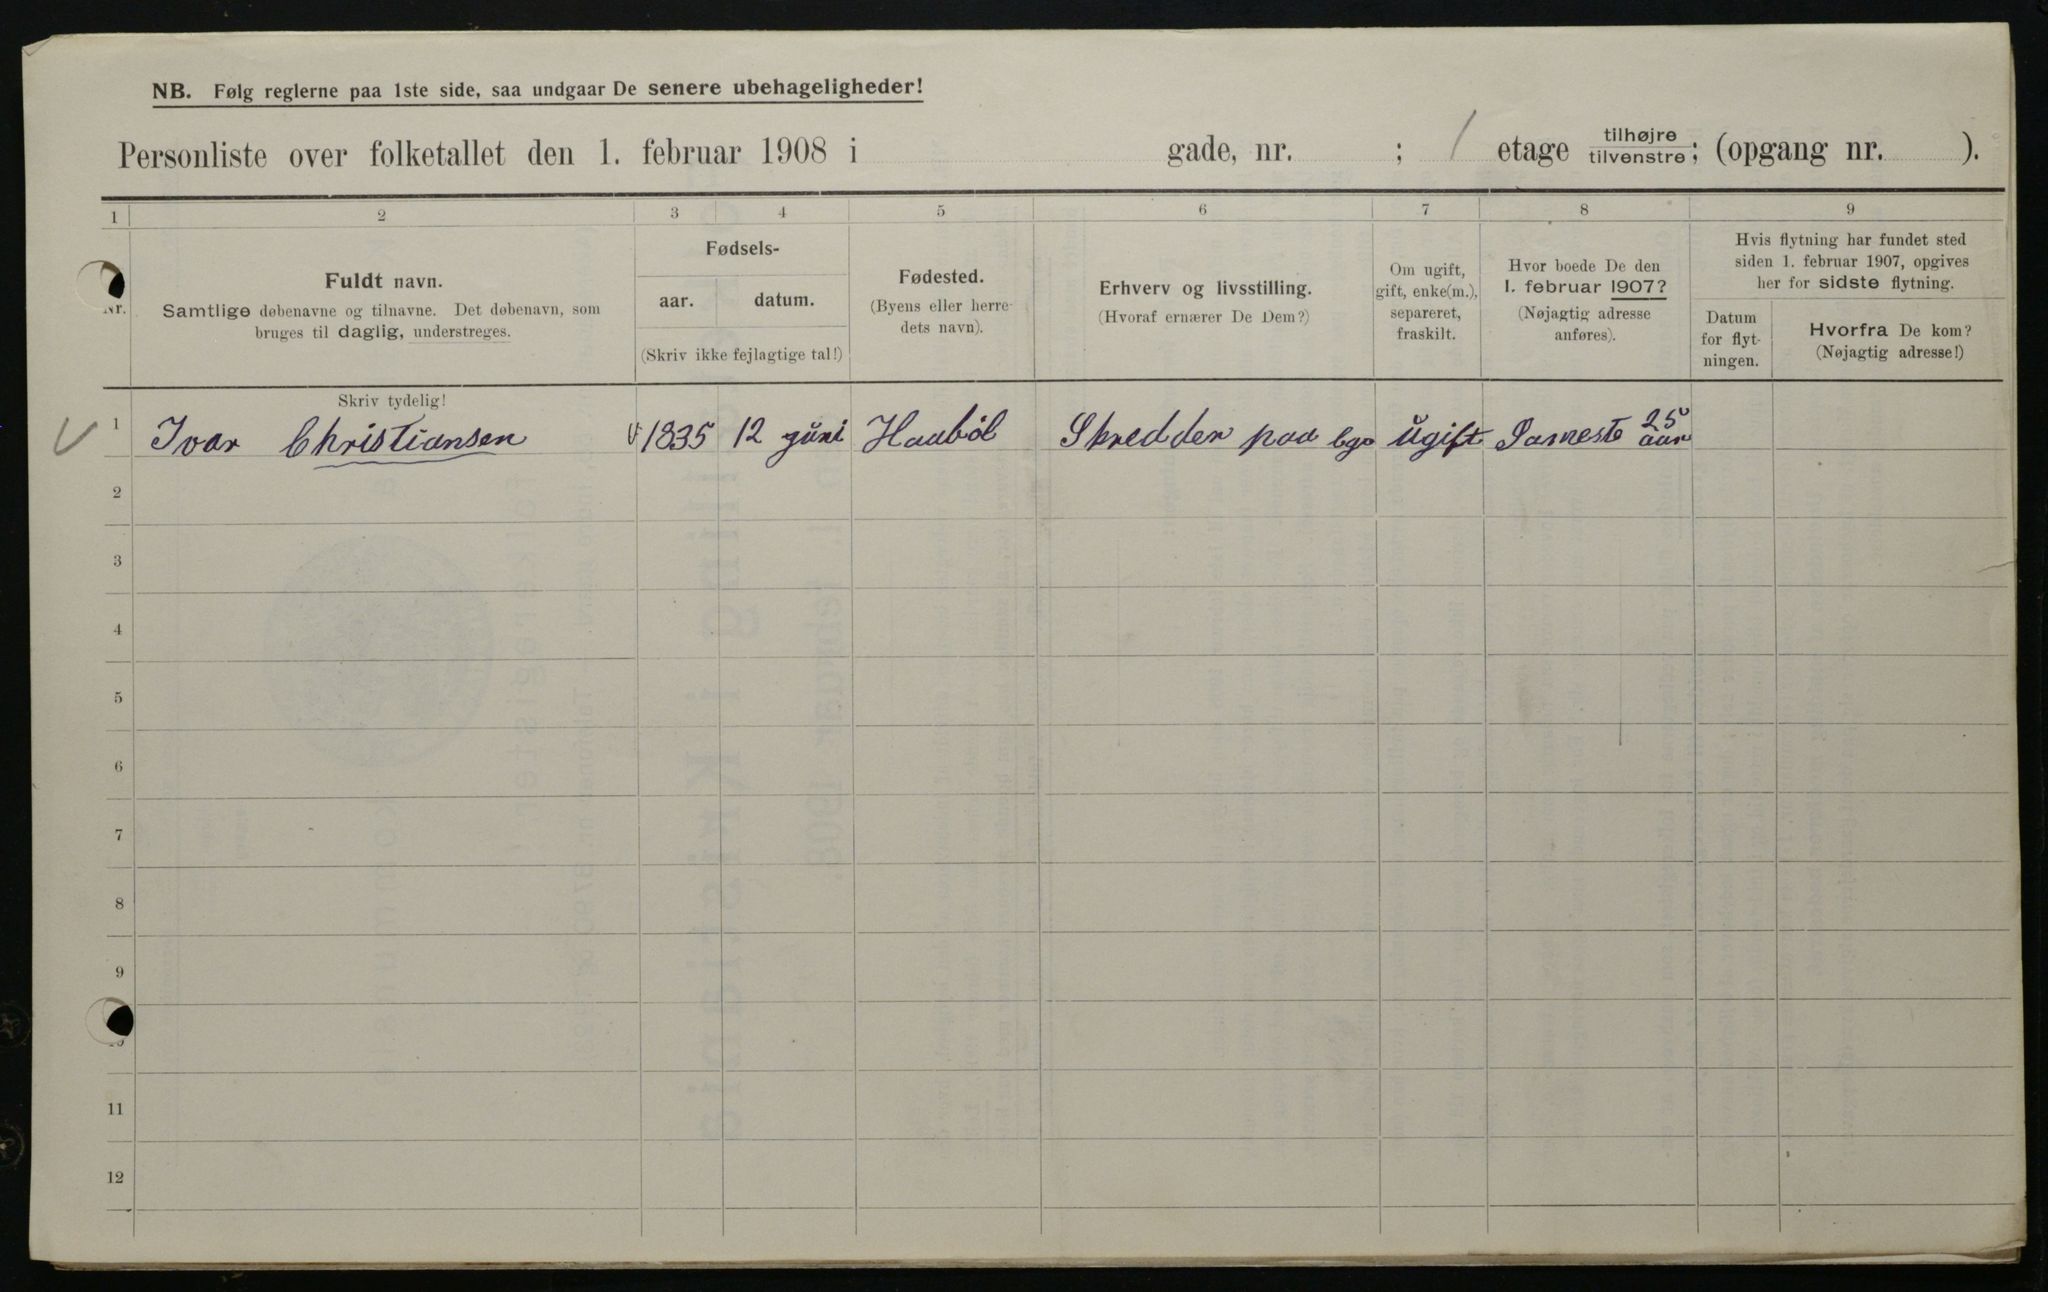 NB. Følg reglerne paa 1ste side, saa undgaar De senere ubehageligheder!
Personliste over folketallet den 1. februar 1908 i gade, nr. ; / etage tilhøjre tilvenstre; (opgang nr. ).
1 2 3 4 5 6 7 8 9
Nr.
Fuldt navn.
Samtlige døbenavne og tilnavne. Det døbenavn, som
bruges til daglig, understreges.
Skriv tydelig!
Fødsels-
aar. datum.
(Skriv ikke fejlagtige tal!)
Fødested.
(Byens eller herre-
dets navn).
Erhverv og livsstilling.
(Hvoraf ernærer De Dem?)
Om ugift,
gift, enke(m.),
separeret,
fraskilt.
Hvor boede De den
1. februar 1907?
(Nøjagtig adresse
anføres).
Hvis flytning har fundet sted
siden 1. februar 1907, opgives
her for sidste flytning.
Datum
for flyt-
ningen.
Hvorfra De kom?
(Nøjagtig adresse!)
1 Ivar Christiansen 1835 12 juni Haaböl Skredder paa ugift Sameste 25 aar
2
3
4
5
6
7
8
9
10
11
12